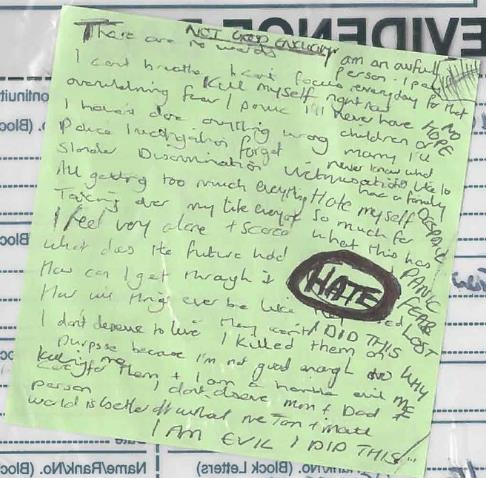 EVIDENCE
NOT GOOD ENOUGH
There are no words
I am an awful person - I pay everyday for that
I can't breathe I can't focus
Kill myself right now
overwhelming fear / panic I'll never have
NO HOPE
children or marry I'll never know what
I haven't done anything wrong
Police Investigation forget
like to have a family
Slander Discrimination Victimisation
All getting too much everything Hate myself
DESPAIR
Taking over my life everyone So much for
what this has
I feel very alone + scared
PANIC
what does the future hold
FEAR
How can I get through it
HATE
LOST
How will things ever be like they
I DID THIS
WHY ME
I don't deserve to live I killed them on
purpose because I'm not good enough to
care for them + I am a horrible evil
person I don't deserve mum + Dad +
world is better off without me
I AM EVIL I DID THIS
Name/Rank/No. (Block
Rank/No. (Block Letters)
No. (Block
Continuit
Date